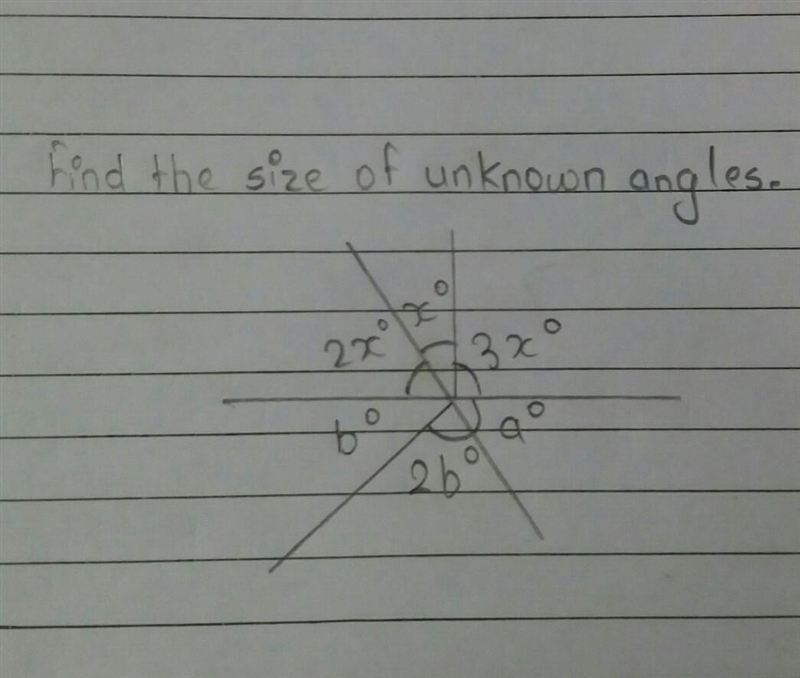 Find the size of unknown angles.
x°
2x° 3x°
b° a°
2b°